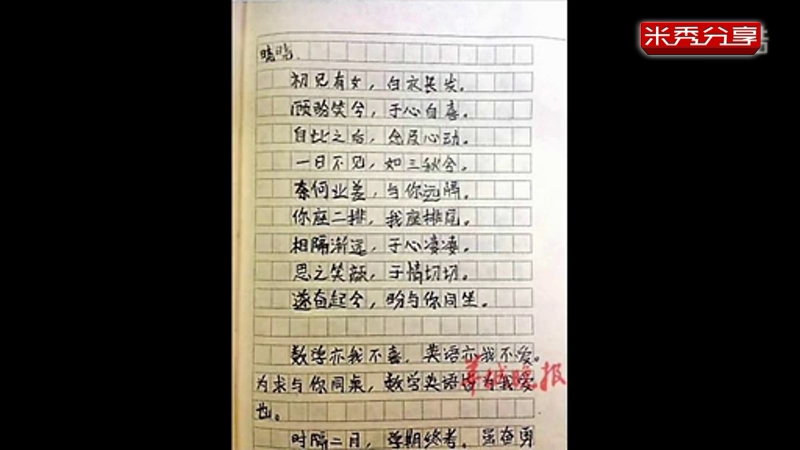 米秀分享
晓晓.
初见有女，白衣长发。
顾盼笑兮，于心自喜。
自此之后，念及心动。
一日不见，如三秋兮。
奈何业差，与你远隔。
你座二排，我座排尾。
相隔渐远，于心凄凄。
思之笑颜，于情切切。
遂奋起兮，盼与你同坐。
数学亦我不喜，英语亦我不爱。
为求与你同桌，数学英语皆为我爱
也。
华城晚报
时隔二月，学期终考。虽奋勇